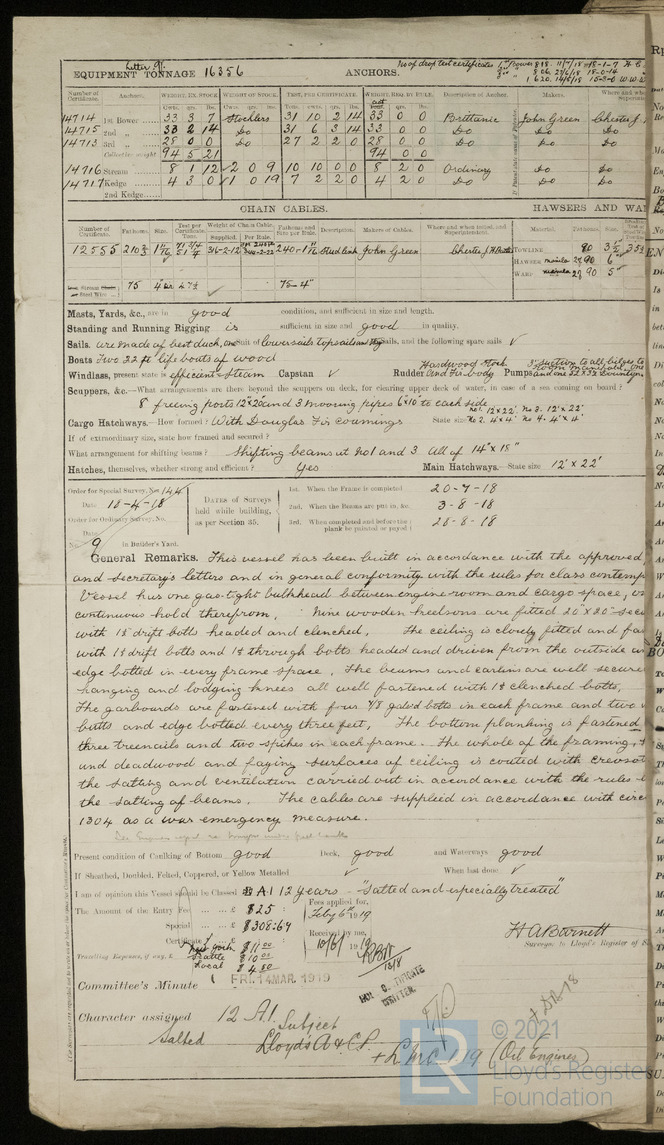 Letter
No of drop test certificates
EQUIPMENT TONNAGE 16356 ANCHORS.
Number of Certificate. Anchors. WEIGHT, EX. STOCK WEIGHT OF STOCK. TEST, PER CERTIFICATE. WEIGHT, REQ. BY RULE. Description of Anchor. Makers. Where and
Cwts. qrs. lbs. Cwts. qrs. lbs. Tons. cwts. qrs. lbs. Cwts. qrs. lbs.
14714 1st Bower 33 3 7 Stockless 31 10 2 14 33 0 0 Brittanic John Green Chester
14715 2nd „ 33 2 14 Do 31 6 3 14 33 0 0 Do Do Do
14713 3rd „ 28 0 0 Do 27 2 2 0 28 0 0 Do Do Do
Collective weight 94 5 21 94 0 0
14716 Stream 8 1 12 2 0 9 10 10 0 0 8 2 0 Ordinary Do Do
14717 Kedge 4 3 0 1 0 19 7 2 2 0 4 2 0 Do Do Do
2nd Kedge
CHAIN CABLES. HAWSERS AND WA
Number of Certificate. Fathoms. Size. Test per Certificate. Weight of Chain Cable. Supplied. Per Rule. Fathoms and Size per Rule. Description. Makers of Cables. Where and when tested, and Superintendent. Material. Fathoms. Size.
12555 210 Stud link John Green Chester
TOWLINE 80
HAWSER manila 90 6"
WARP manila 90 5"
Stream
Steel Wire 75 75-4"
Masts, Yards, &c., are in good condition, and sufficient in size and length.
Standing and Running Rigging is sufficient in size and good in quality.
Sails. are made of best duck, one Suit of lowersails topsails Sails, and the following spare sails √
Boats Two 22 ft life boats of wood
Windlass, present state is efficient steam Capstan √ Rudder Hardwood Stock and Fir body Pumps 3" suction to all bilges to
Scuppers, &c.—What arrangements are there beyond the scuppers on deck, for clearing upper deck of water, in case of a sea coming on board?
8 freeing ports 12"x20" and 3 mooring pipes 6"x10" to each side
Cargo Hatchways.—How formed? With Douglas Fir coamings State size No 1. 12'x22' No 3. 12'x22' No 2. 4'x4' No 4. 4'x4'
If of extraordinary size, state how framed and secured?
What arrangement for shifting beams? Shifting beams at No 1 and 3 All of 14"x18"
Hatches, themselves, whether strong and efficient? Yes Main Hatchways.—State size 12'x22'
Order for Special Survey, No. 144
Date 18-4-18
Order for Ordinary Survey, No.
Date
No. 9 in Builder's Yard.
DATES of SURVEYS held while building, as per Section 35.
1st. When the Frame is completed 20-7-18
2nd. When the Beams are put in, &c. 3-8-18
3rd. When completed and before the plank be painted or payed 28-8-18
General Remarks. This vessel has been built in accordance with the approved
and secretary's letters and in general conformity with the rules for class contemp
Vessel has one gas tight bulkhead between engine room and cargo space,
continuous hold therefrom. Nine wooden keelsons are fitted 20"x20"
with 1⅜ drift bolts headed and clenched. The ceiling is closely fitted and
with 1⅛ drift bolts and 1⅛ through bolts headed and driven from the outside
edge bolted in every frame space. The beams and carlins are well secure
hanging and lodging knees all well fastened with 1⅛ clenched bolts.
The garboards are fastened with four 7/8 galvd bolts in each frame and two
butts and edge bolted every three feet. The bottom planking is fastened
three treenails and two spikes in each frame. The whole of the framing,
and deadwood and faying surfaces of ceiling is coated with creosot
the salting and ventilation carried out in accordance with the rules
the salting of beams. The cables are supplied in accordance with circ
1304 as a war emergency measure.
Present condition of Caulking of Bottom good Deck, good and Waterways good
If Sheathed, Doubled, Felted, Coppered, or Yellow Metalled √ When last done √
I am of opinion this Vessel should be Classed A1 12 years - "Salted and especially treated"
The Amount of the Entry Fee £ $25.
Special £ $308.64
Certificate
New York $11.00
Travelling Expenses, if any, £ Seattle $10.00
Local $4.80
Fees applied for, Feby 6th 1919
Received by me, 10/6/1919
H A Barnett
Surveyor to Lloyd's Register of S
Committee's Minute FRI. 14 MAR. 1919
Character assigned 12 A1. Subject
Salted Lloyd's A & C.P.
+ LMC 1.19 (Oil Engines)
LR
© 2021
Lloyd's Register
Foundation